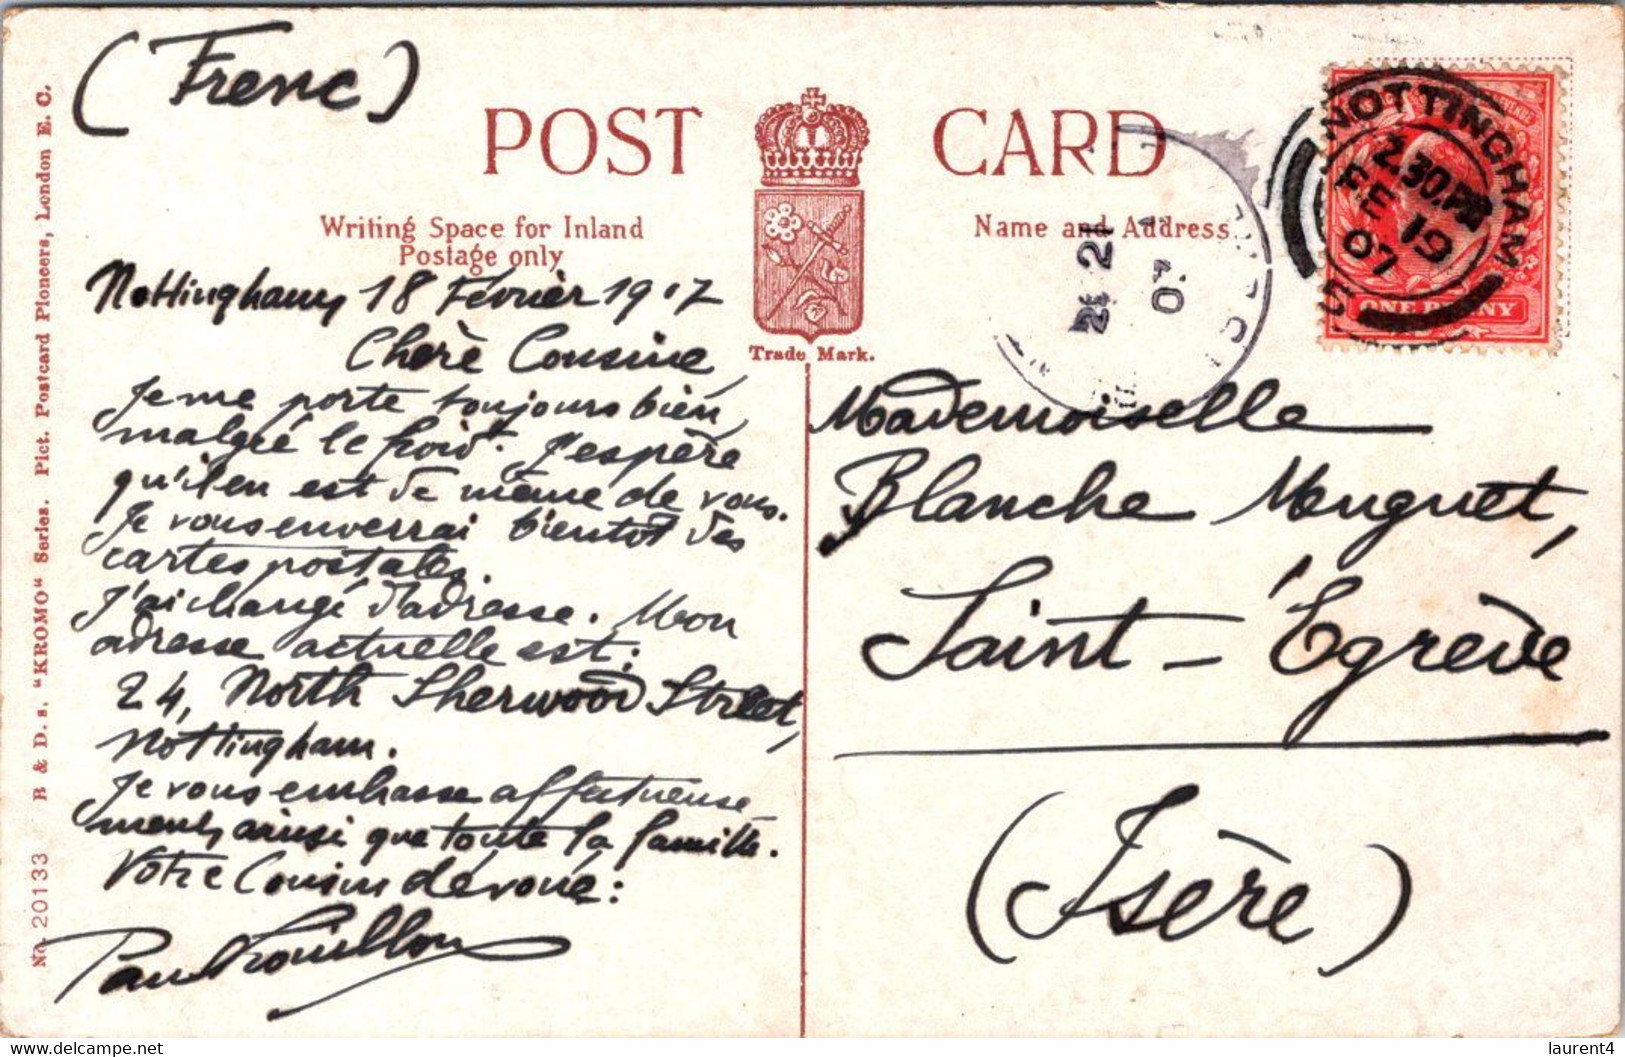 (Frenc)
POST CARD
Writing Space for Inland
Postage only
Name and Address
Trade Mark.
NOTTINGHAM
2.30.PM
FE 19
07
5
ONE PENNY
21
07
No. 20133 B & D. s. "KROMO" Series. Pict. Postcard Pioneers, London E. C.
Nottingham, 18 Février 1907
Chère Cousine,
Je me porte toujours bien,
malgré le froid. J'espère
qu'il en est de même de vous.
Je vous enverrai bientôt des
cartes postales.
J'ai changé d'adresse. Mon
adresse actuelle est:
24, North Sherwood Street,
Nottingham.
Je vous embrasse affectueuse-
ment, ainsi que toute la famille.
Votre Cousin dévoué:
Paul
Mademoiselle
Blanche Muguet,
Saint-Egrève
(Isère)
delcampe.net
laurent4